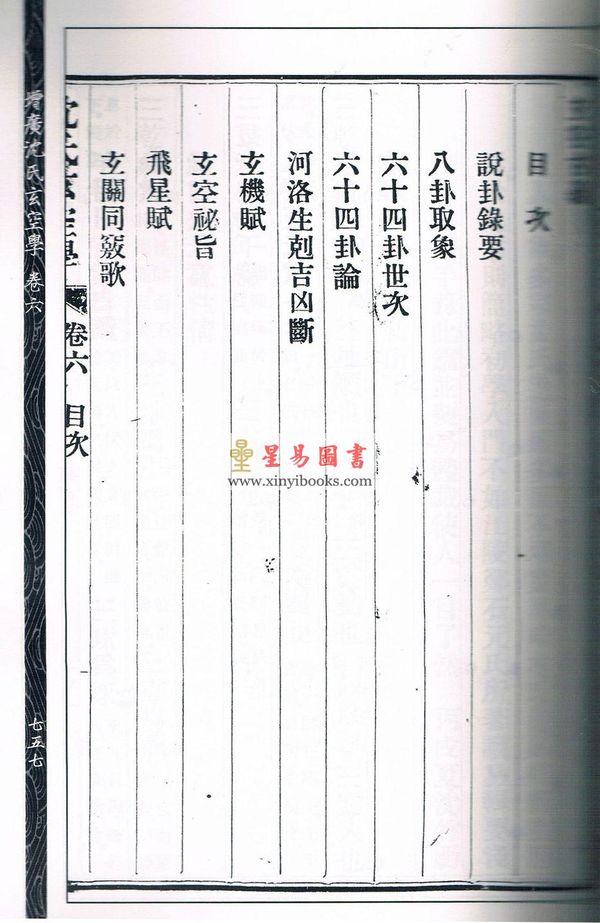 目次
說卦錄要
八卦取象
六十四卦世次
六十四卦論
河洛生剋吉凶斷
玄機賦
玄空祕旨
飛星賦
玄關同竅歌
卷六 目次
增廣沈氏玄空學 卷六
七五七
星易圖書
www.xinyibooks.com